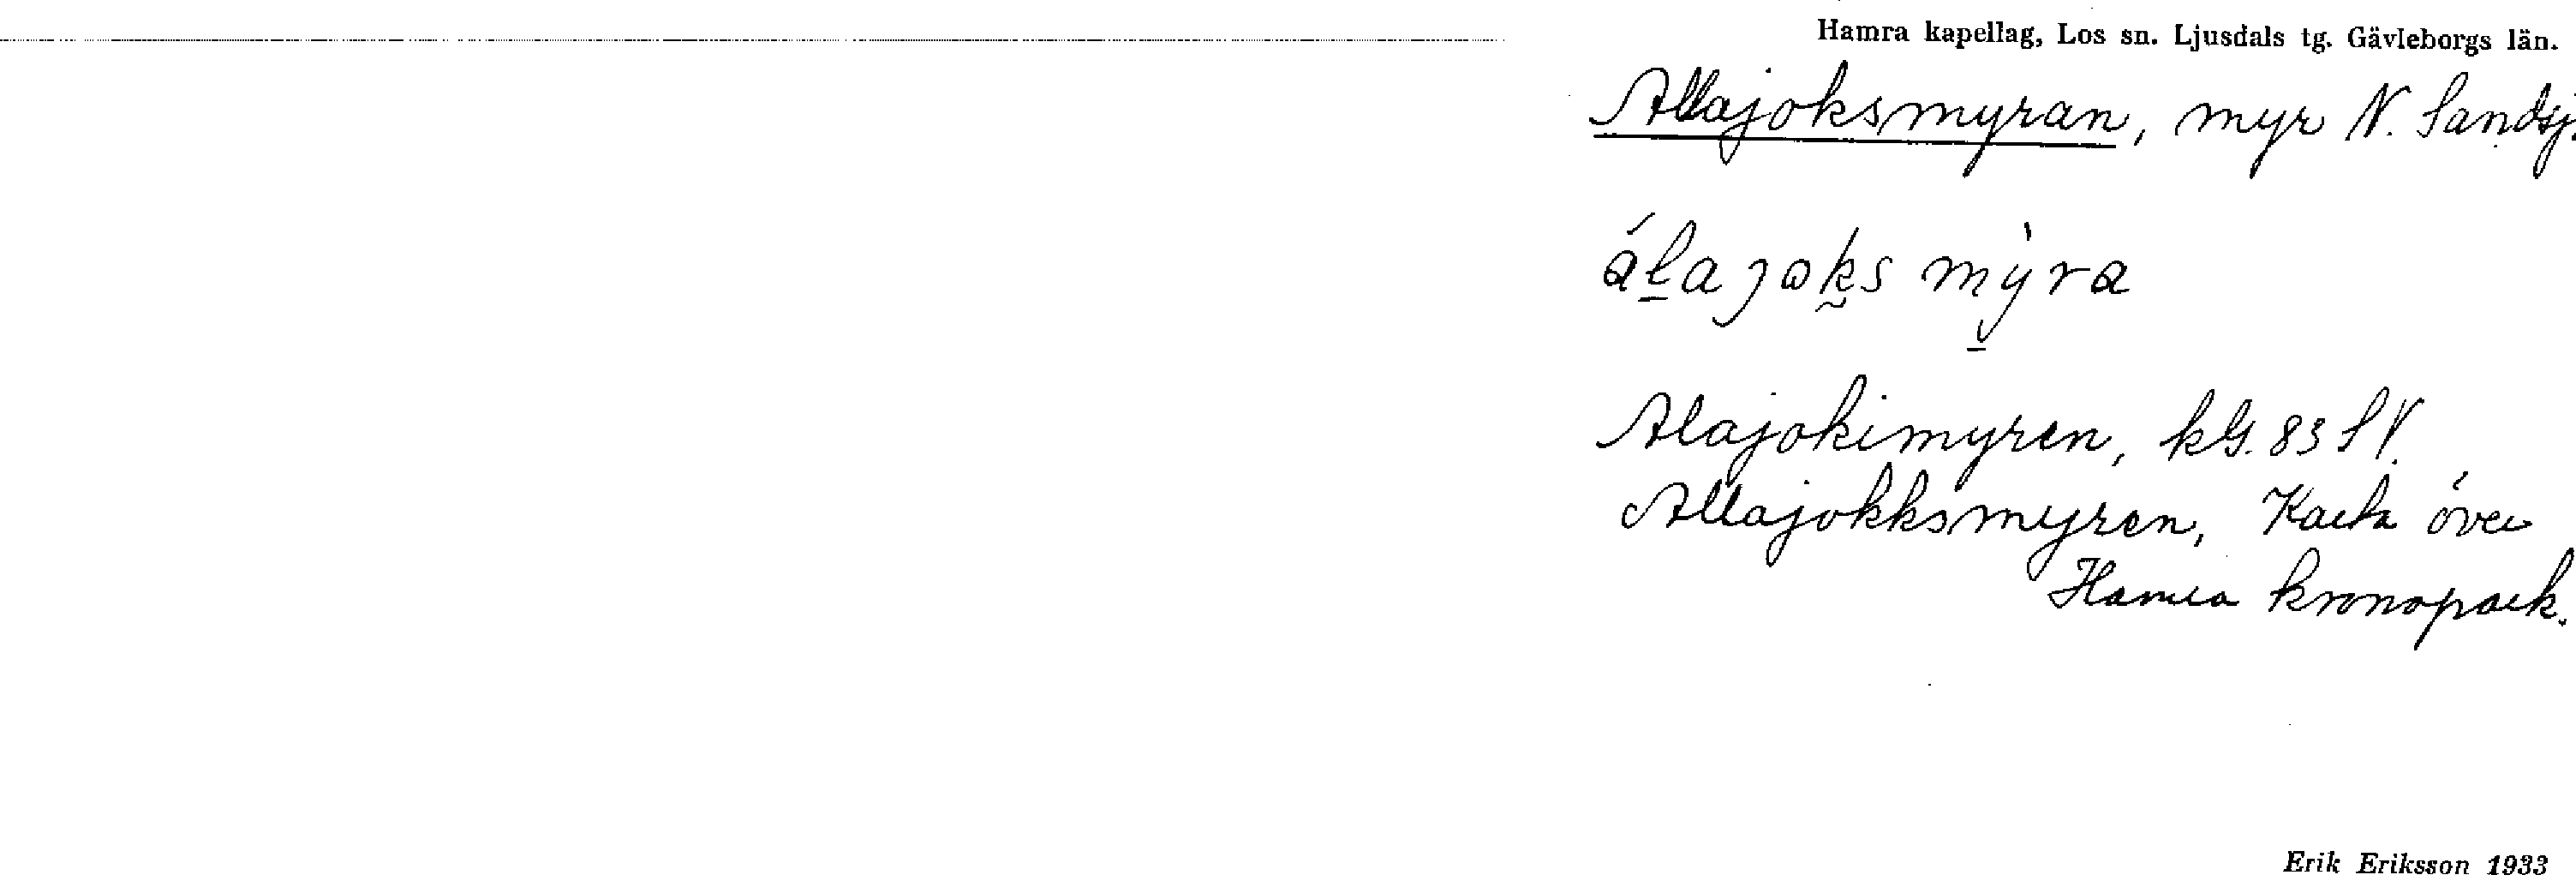 Hamra kapellag, Los sn. Ljusdals tg. Gävleborgs län.
Allajoksmyran, myr N. Sandsj.
álajoks mỳra
Alajokimyren, kG. 83 SV.
Allajokksmyren, Karta över
Hamra kronopark.
Erik Eriksson 1933